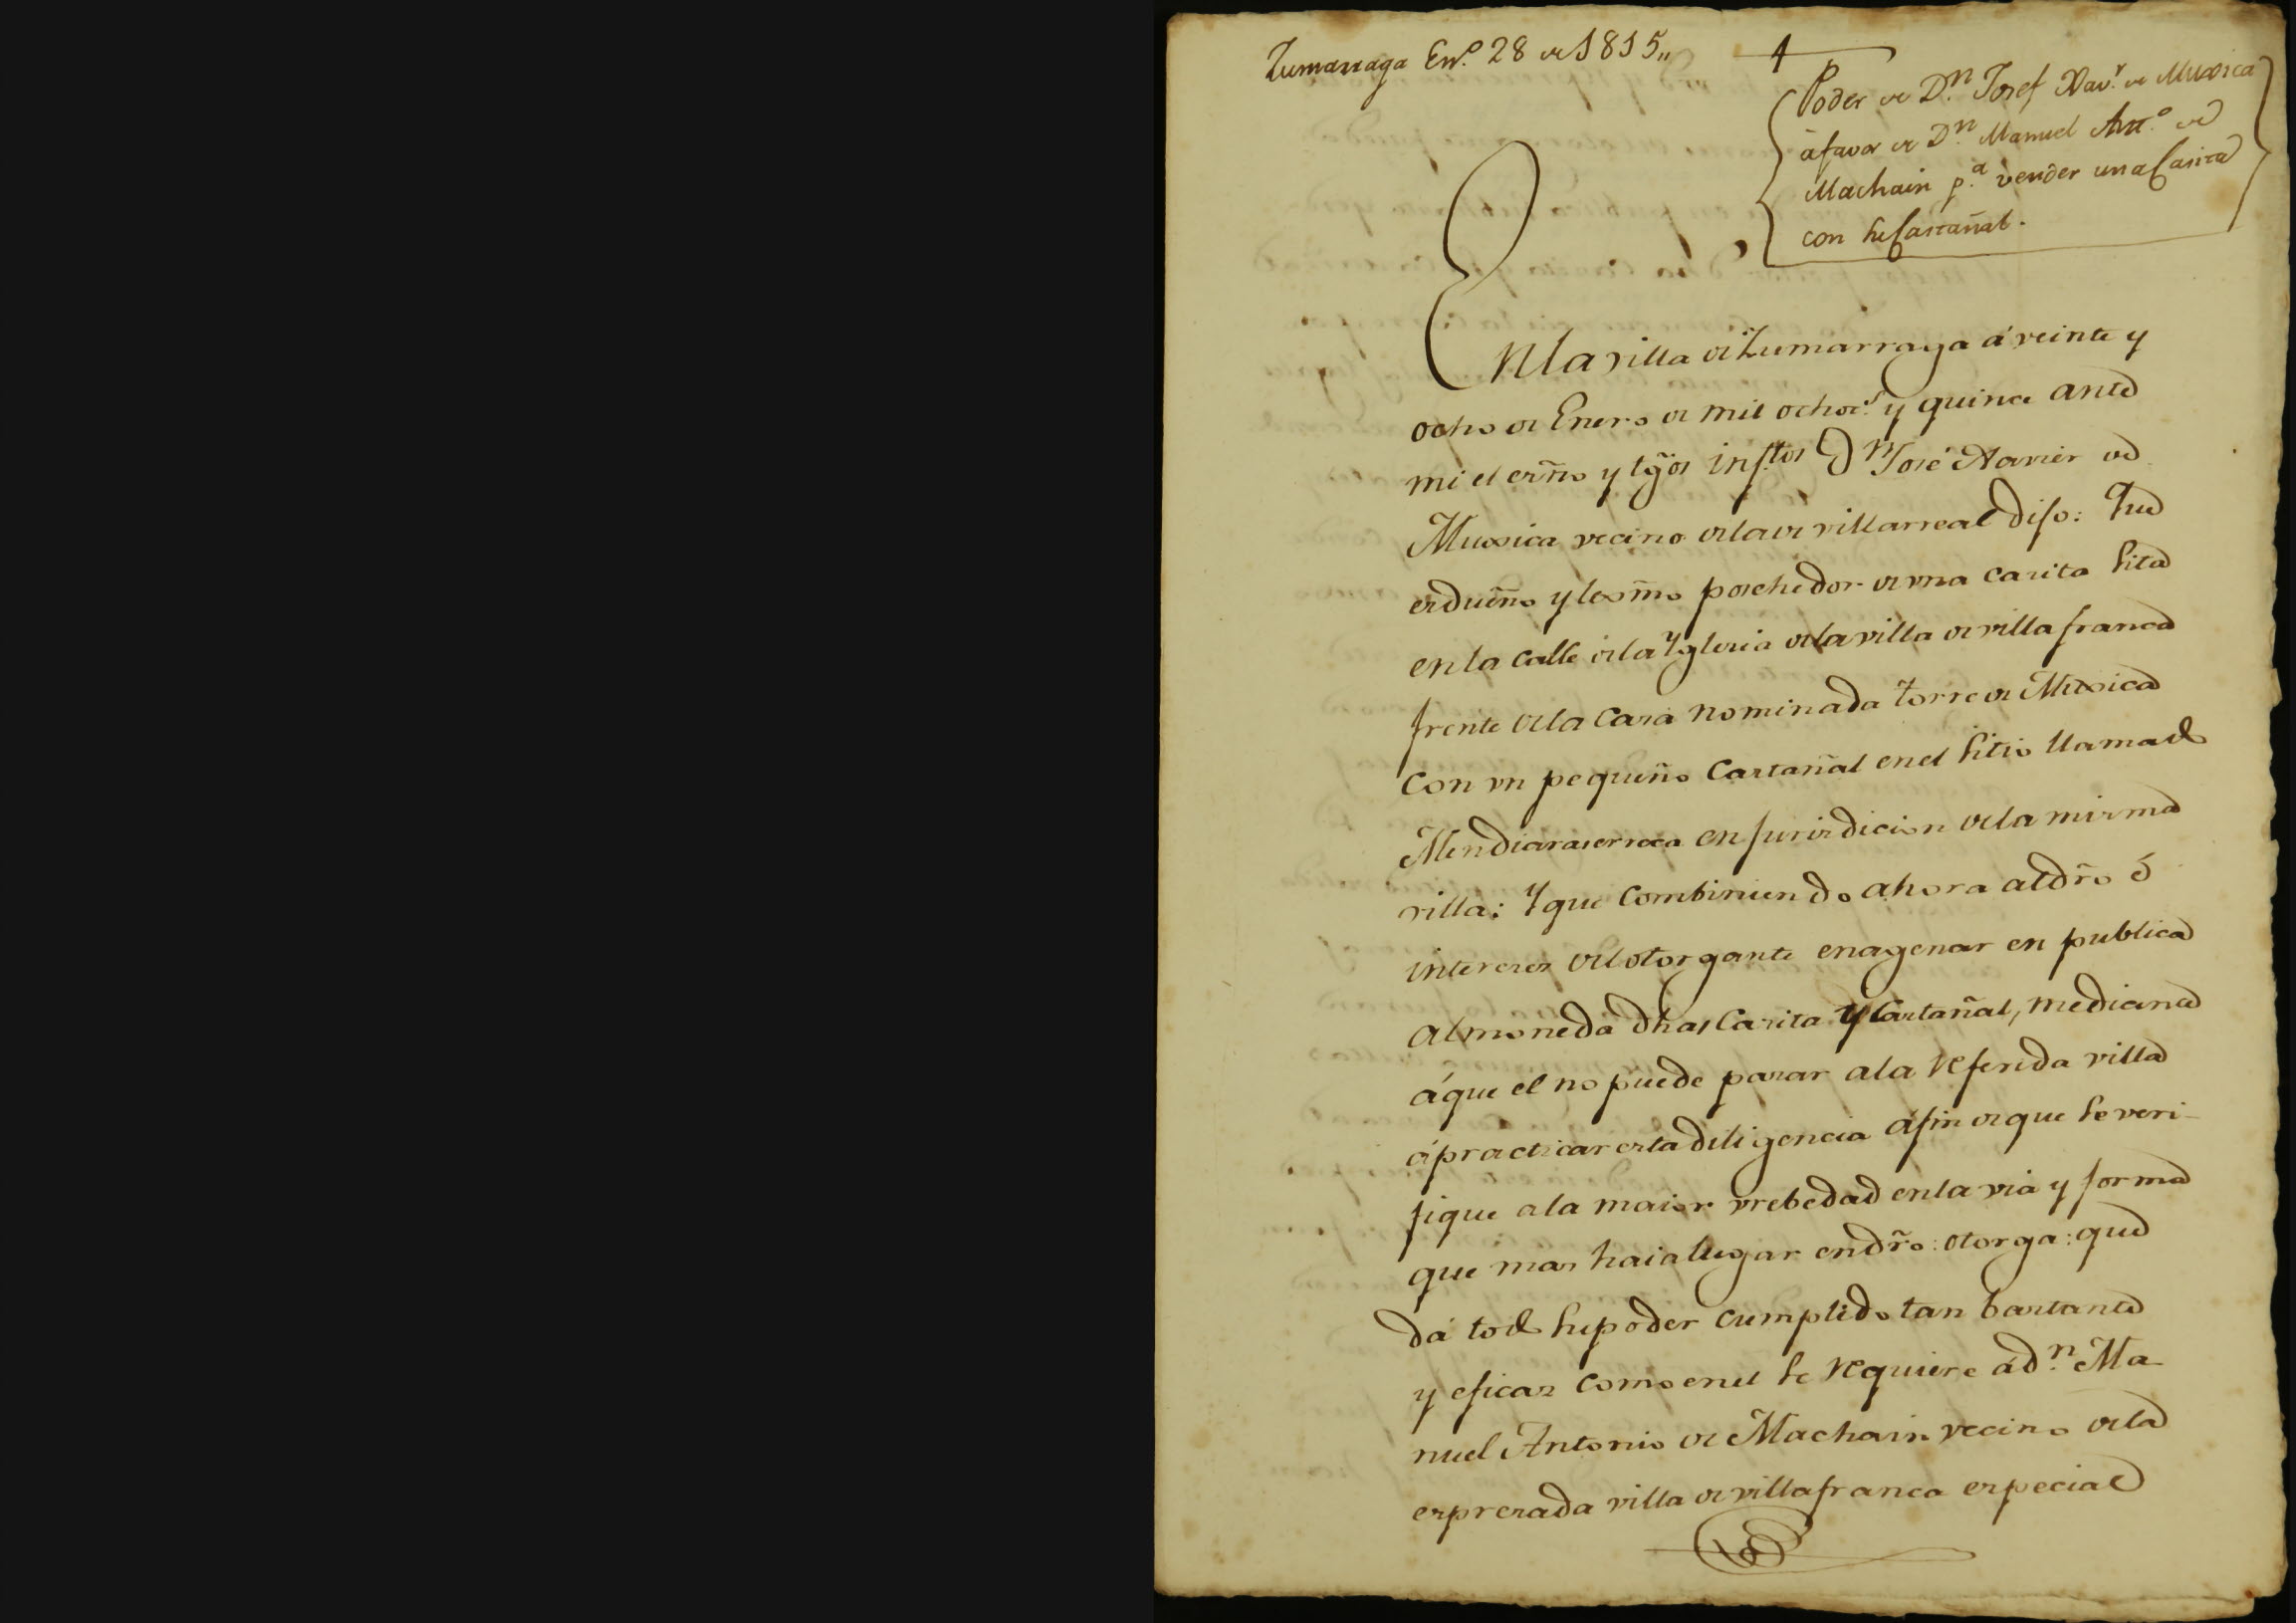 Zumarraga En.º 28 de 1815,,
Poder de D.n Josef Xav.r de Muxica
á favor de D.n Manuel Ant.º de
Machain p.a vender una Casita
con su Castañal.
En la villa de Zumarraga á veinte y
ocho de Enero de mil ochoc.s y quince ante
mi el esrño y tgõs infrtos D.n José Xavier de
Muxica vecino de la de villarreal dijo: Que
es dueño y lexmõ poshedor de vna casita sita
en la calle de la Yglesia de la villa de villafranca
frente de la Casa nominada torre de Muxica
con vn pequeño Castañal en el sitio llamado
Mendiaraserreca en jurisdicion de la misma
villa: Y que combiniendo ahora al dr̃o é
intereses del otorgante enagenar en publica
almoneda dhas Casita y Castañal, mediante
á que él no puede pasar a la referida villa
á practicar esta diligencia áfin de que se veri-
fique a la maior vrebedad en la via y forma
que mas haia lugar en dr̃o: otorga: que
dá todo su poder cumplido tan bastante
y eficaz como en el se requiere á d.n Ma-
nuel Antonio de Machain vecino de la
espresada villa de villafranca especial